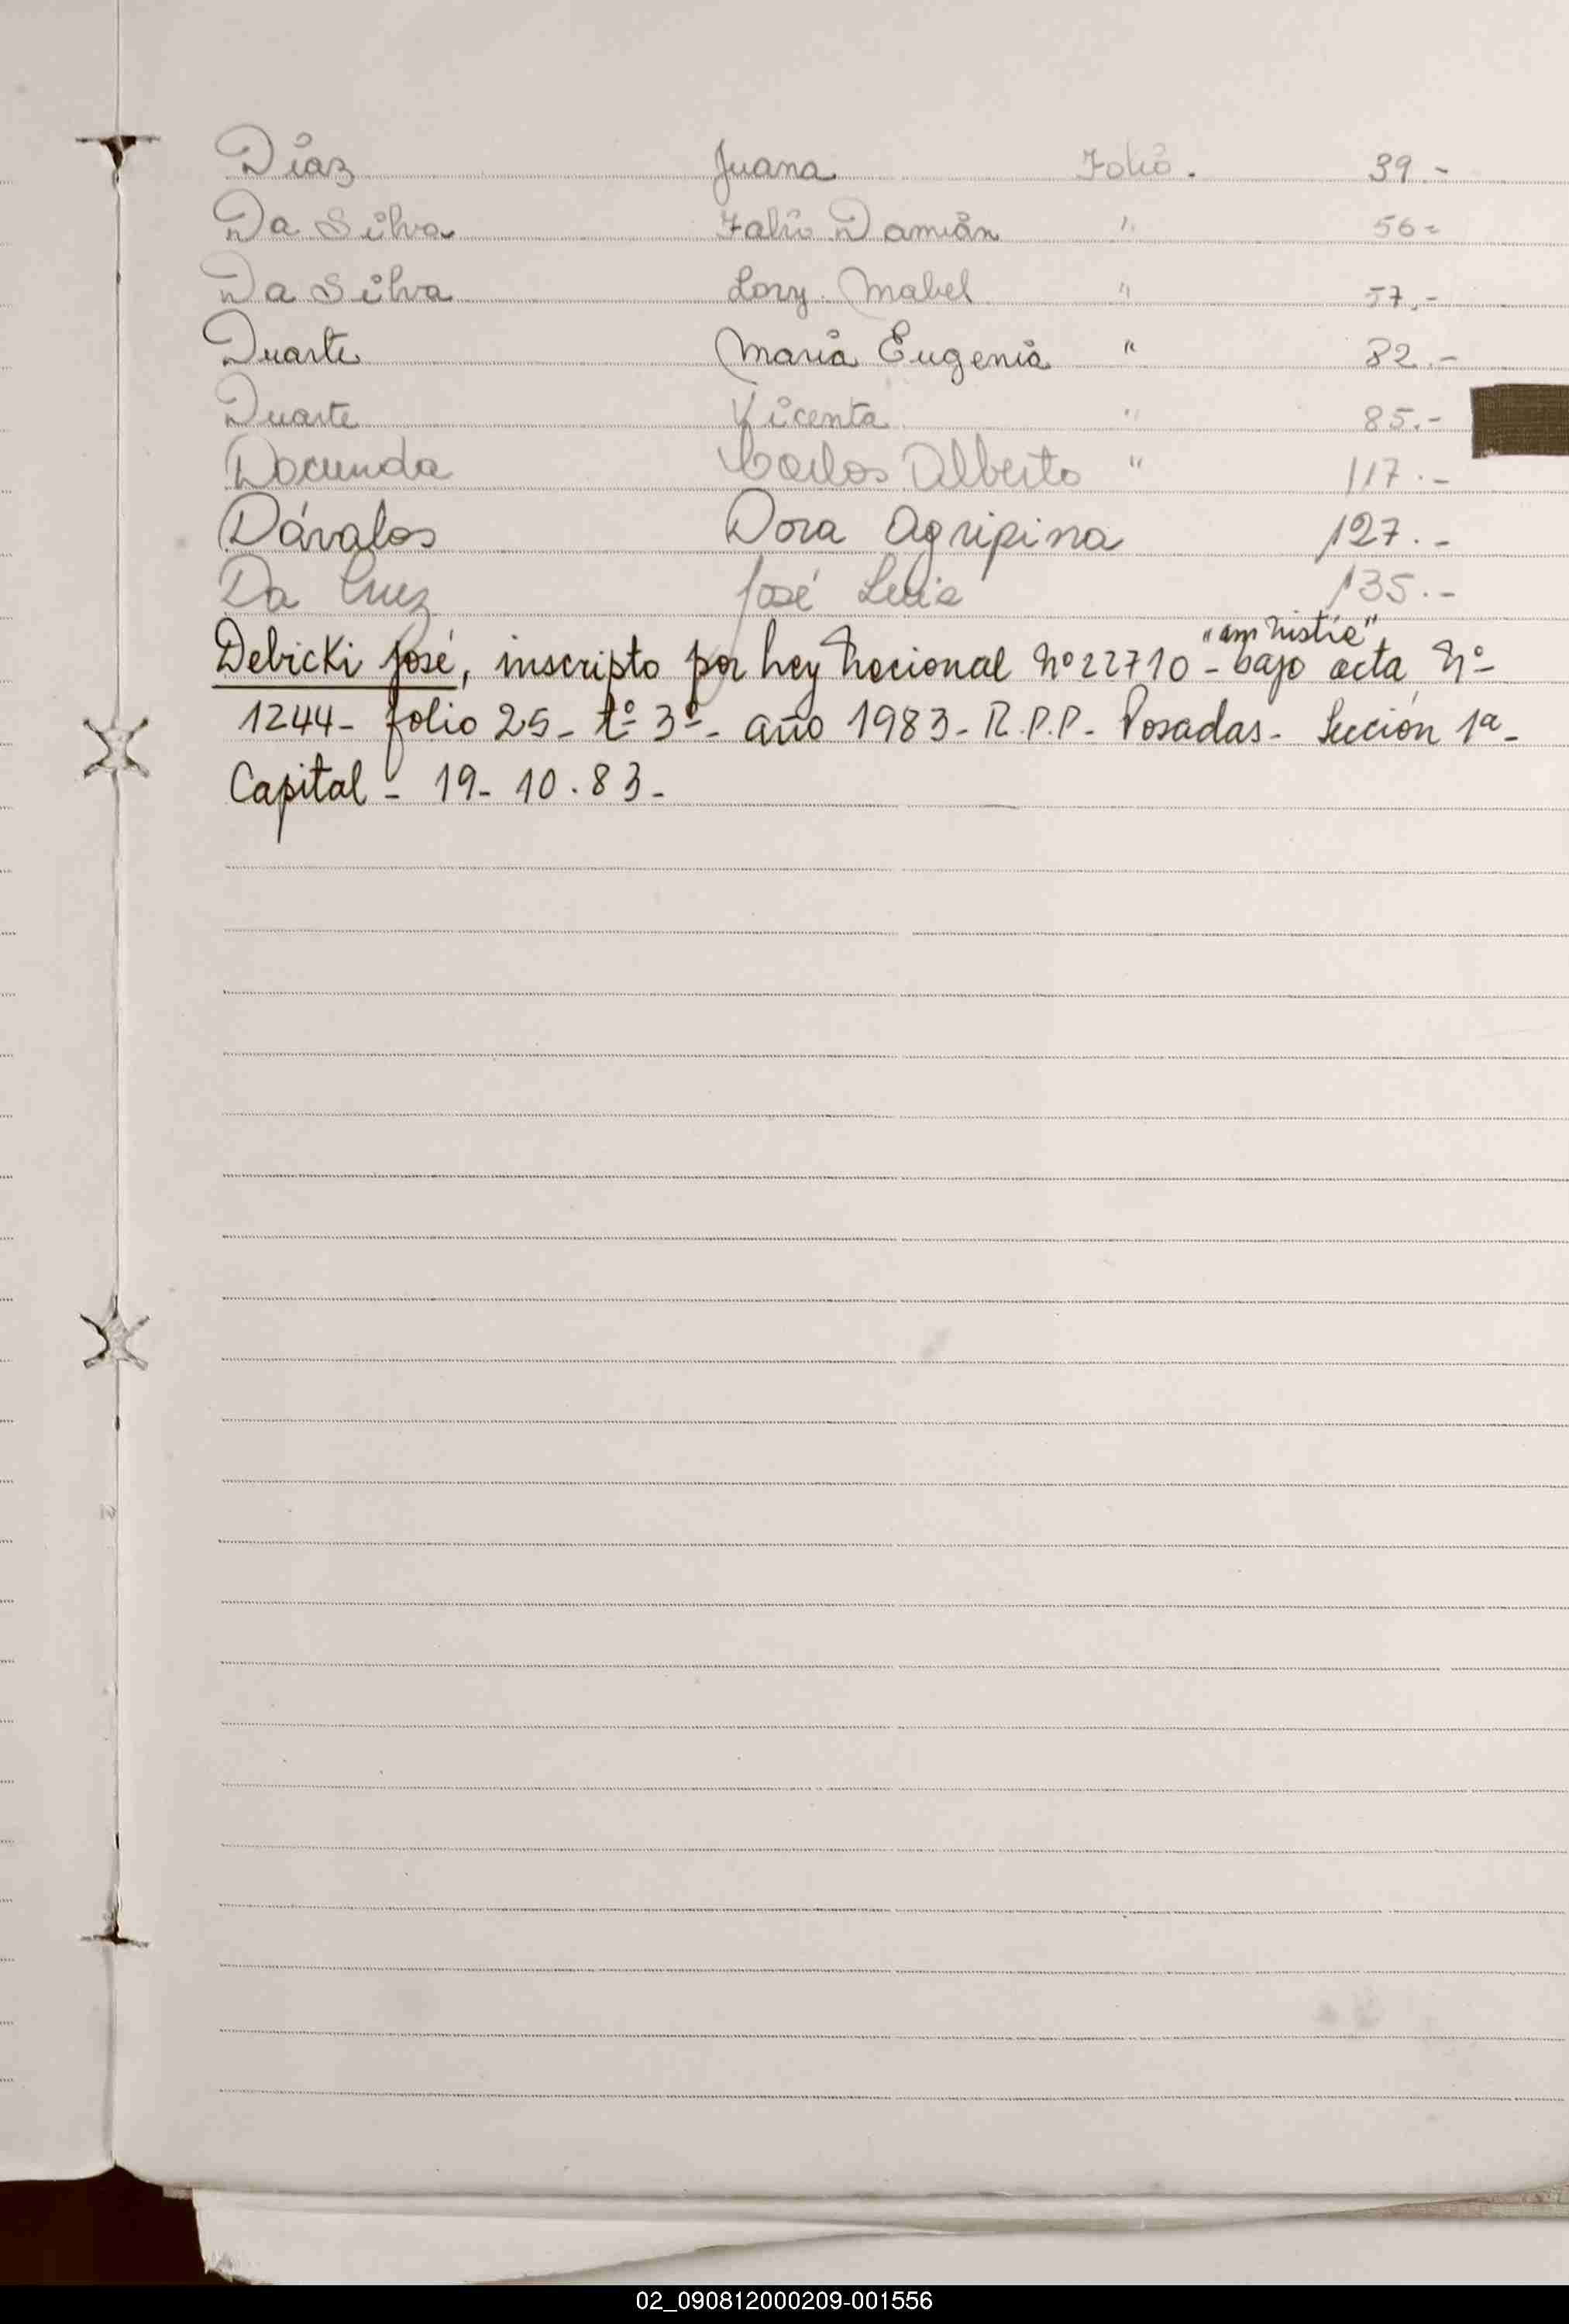 Díaz Juana Folio. 39.-
Da Silva Fabio Damián " 56=
Da Silva Lory Mabel " 57.-
Duarte María Eugenia " 82.-
Duarte Vicenta " 85.-
Docunda Carlos Alberto " 117.-
Dávalos Dora Agripina 127.-
Da Cruz José Luis 135.-
"amnistía"
Debicki José, inscripto por Ley Nacional Nº 22710 - bajo acta Nº
1244- folio 25- tº 3º- año 1983- R.P.P- Posadas- Sección 1ª-
Capital- 19- 10.83-
02_090812000209-001556